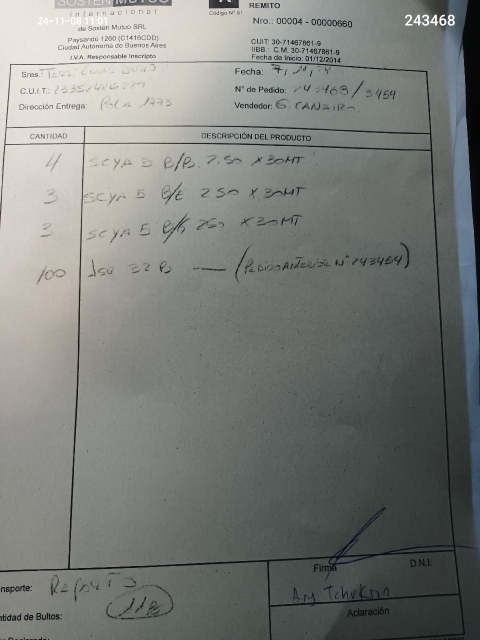 24-11-08 11:01
243468
SOSTÉN MUTUO
internacional
de Sosten Mutuo SRL
Paysandú 1260 (C1416CDD)
Ciudad Autónoma de Buenos Aires
I.V.A. Responsable Inscripto
R
Código N° 91
REMITO
Nro.: 00004 - 00000660
CUIT: 30-71467861-9
IIBB.: C.M. 30-71467861-9
Fecha de Inicio: 01/12/2014
Sres.:
C.U.I.T.:
Dirección Entrega: Pola 1773
Fecha: 7, 11, 4
N° de Pedido: 243468/3454
Vendedor:
CANTIDAD DESCRIPCIÓN DEL PRODUCTO
4 SCYA 5 B/B 2.50 X 30MT
3 SCYA 5 B/E 250 X 30MT
3 SCYA 5 250 X 30MT
100 32 B — (PEDIDO ANTERIOR N° 243454)
nsporte:
ntidad de Bultos: 11
Firma
D.N.I.
Aclaración